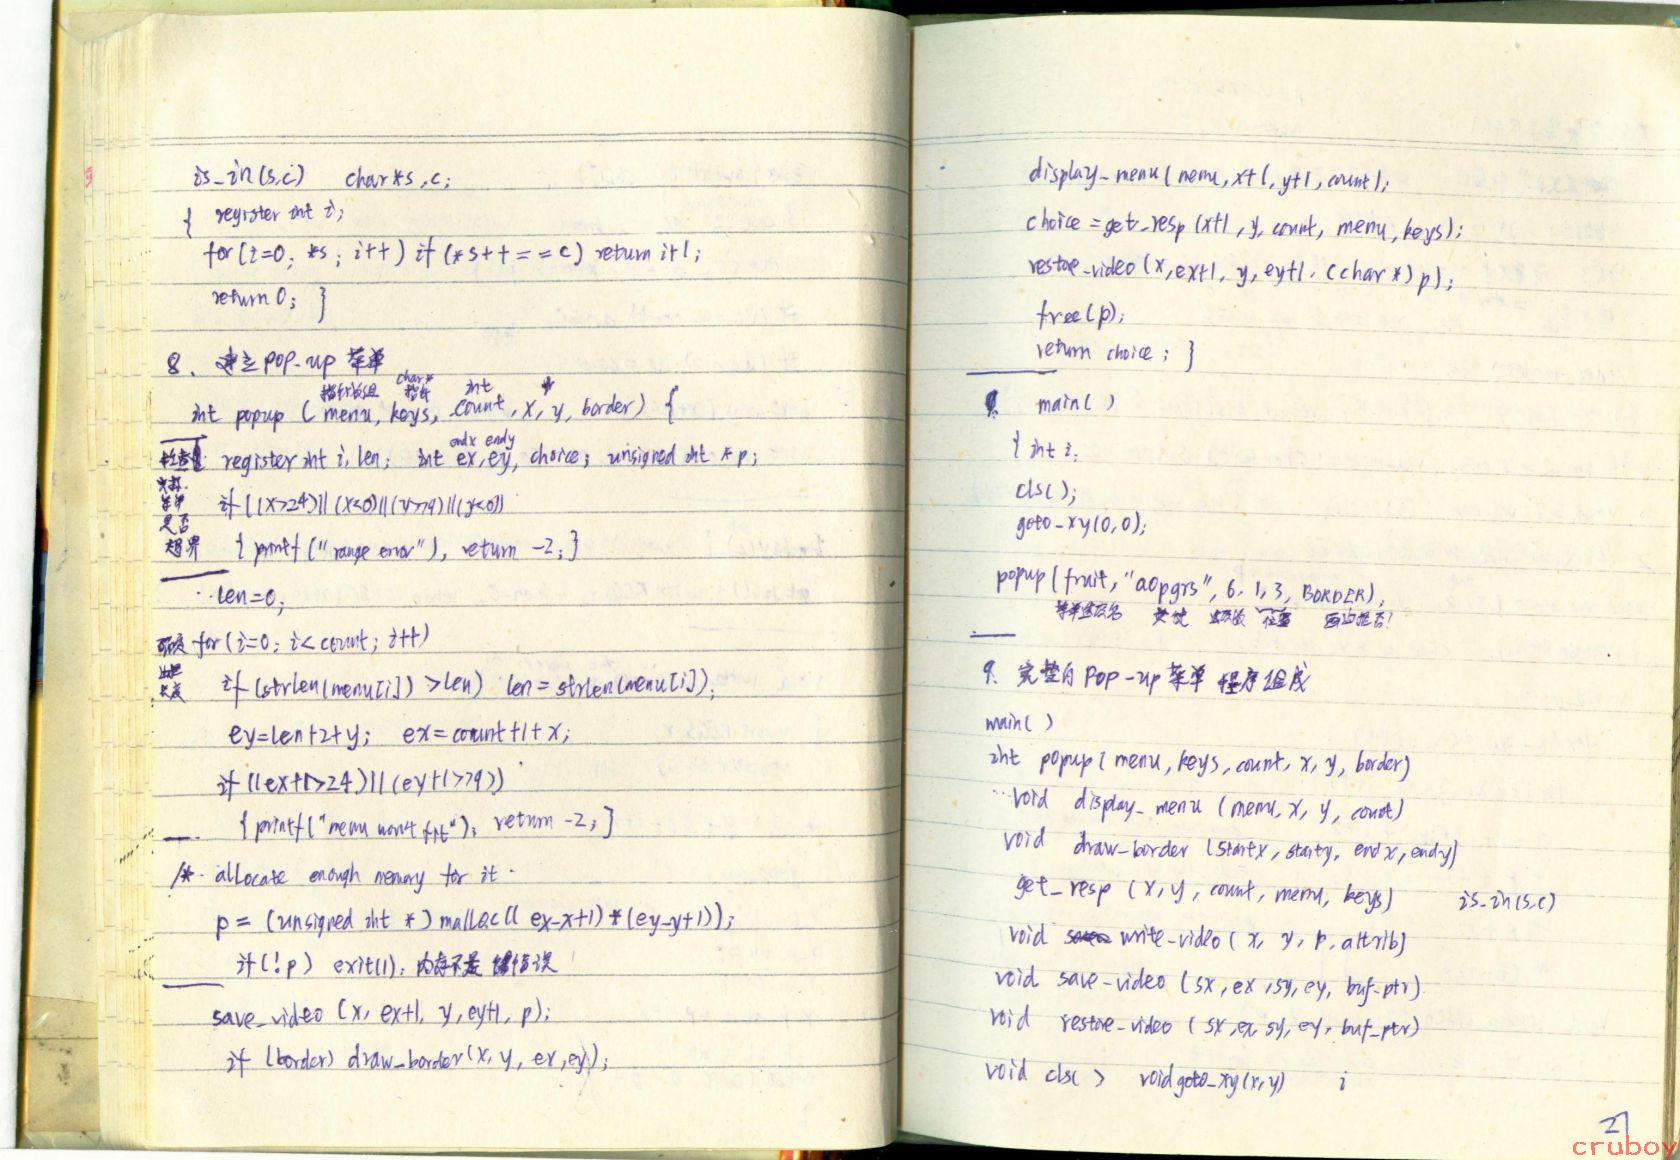 is_in(s,c) char *s, c;
{ register int i;
for(i=0; *s; i++) if (*s++ == c) return i+1;
return 0; }
8. 建立 pop-up 菜单
指针数组 char* 指针 int
int popup ( menu, keys, count, x, y, border) {
endx endy
register int i, len; int ex, ey, choice; unsigned int *p;
菜单
if ((x>24)||(x<0)||(y>79)||(y<0))
是否
超界 { printf ("range error"), return -2; }
len=0;
for(i=0; i<count; i++)
if (strlen(menu[i]) >len) len = strlen(menu[i]);
长度
ey=len+2+y; ex=count+1+x;
if ((ex+1>24)||(ey+1>79))
{ printf("menu won't fit"); return -2; }
/* allocate enough memory for it
p = (unsigned int *) malloc(( ex-x+1)*(ey-y+1));
if(!p) exit(1); 内存不足 错误
save_video (x, ex+1, y, ey+1, p);
if (border) draw_border(x, y, ex, ey);
display_menu( menu, x+1, y+1, count);
choice = get_resp (x+1, y, count, menu, keys);
restore_video (x, ex+1, y, ey+1, (char *) p);
free(p);
return choice; }
main( )
{ int i;
cls();
goto_xy(0,0);
popup( fruit, "aopgrs", 6, 1, 3, BORDER);
位置
9. 完整的 Pop-up 菜单 程序组成
main( )
int popup( menu, keys, count, x, y, border)
void display_menu (menu, x, y, count)
void draw_border (startx, starty, endx, endy)
get_resp (x, y, count, menu, keys) is_in(s,c)
void write_video( x, y, p, attrib)
void save_video (sx, ex, sy, ey, buf_ptr)
void restore_video (sx, ex, sy, ey, buf_ptr)
void cls( ) void goto_xy(x,y) i
27
cruboy